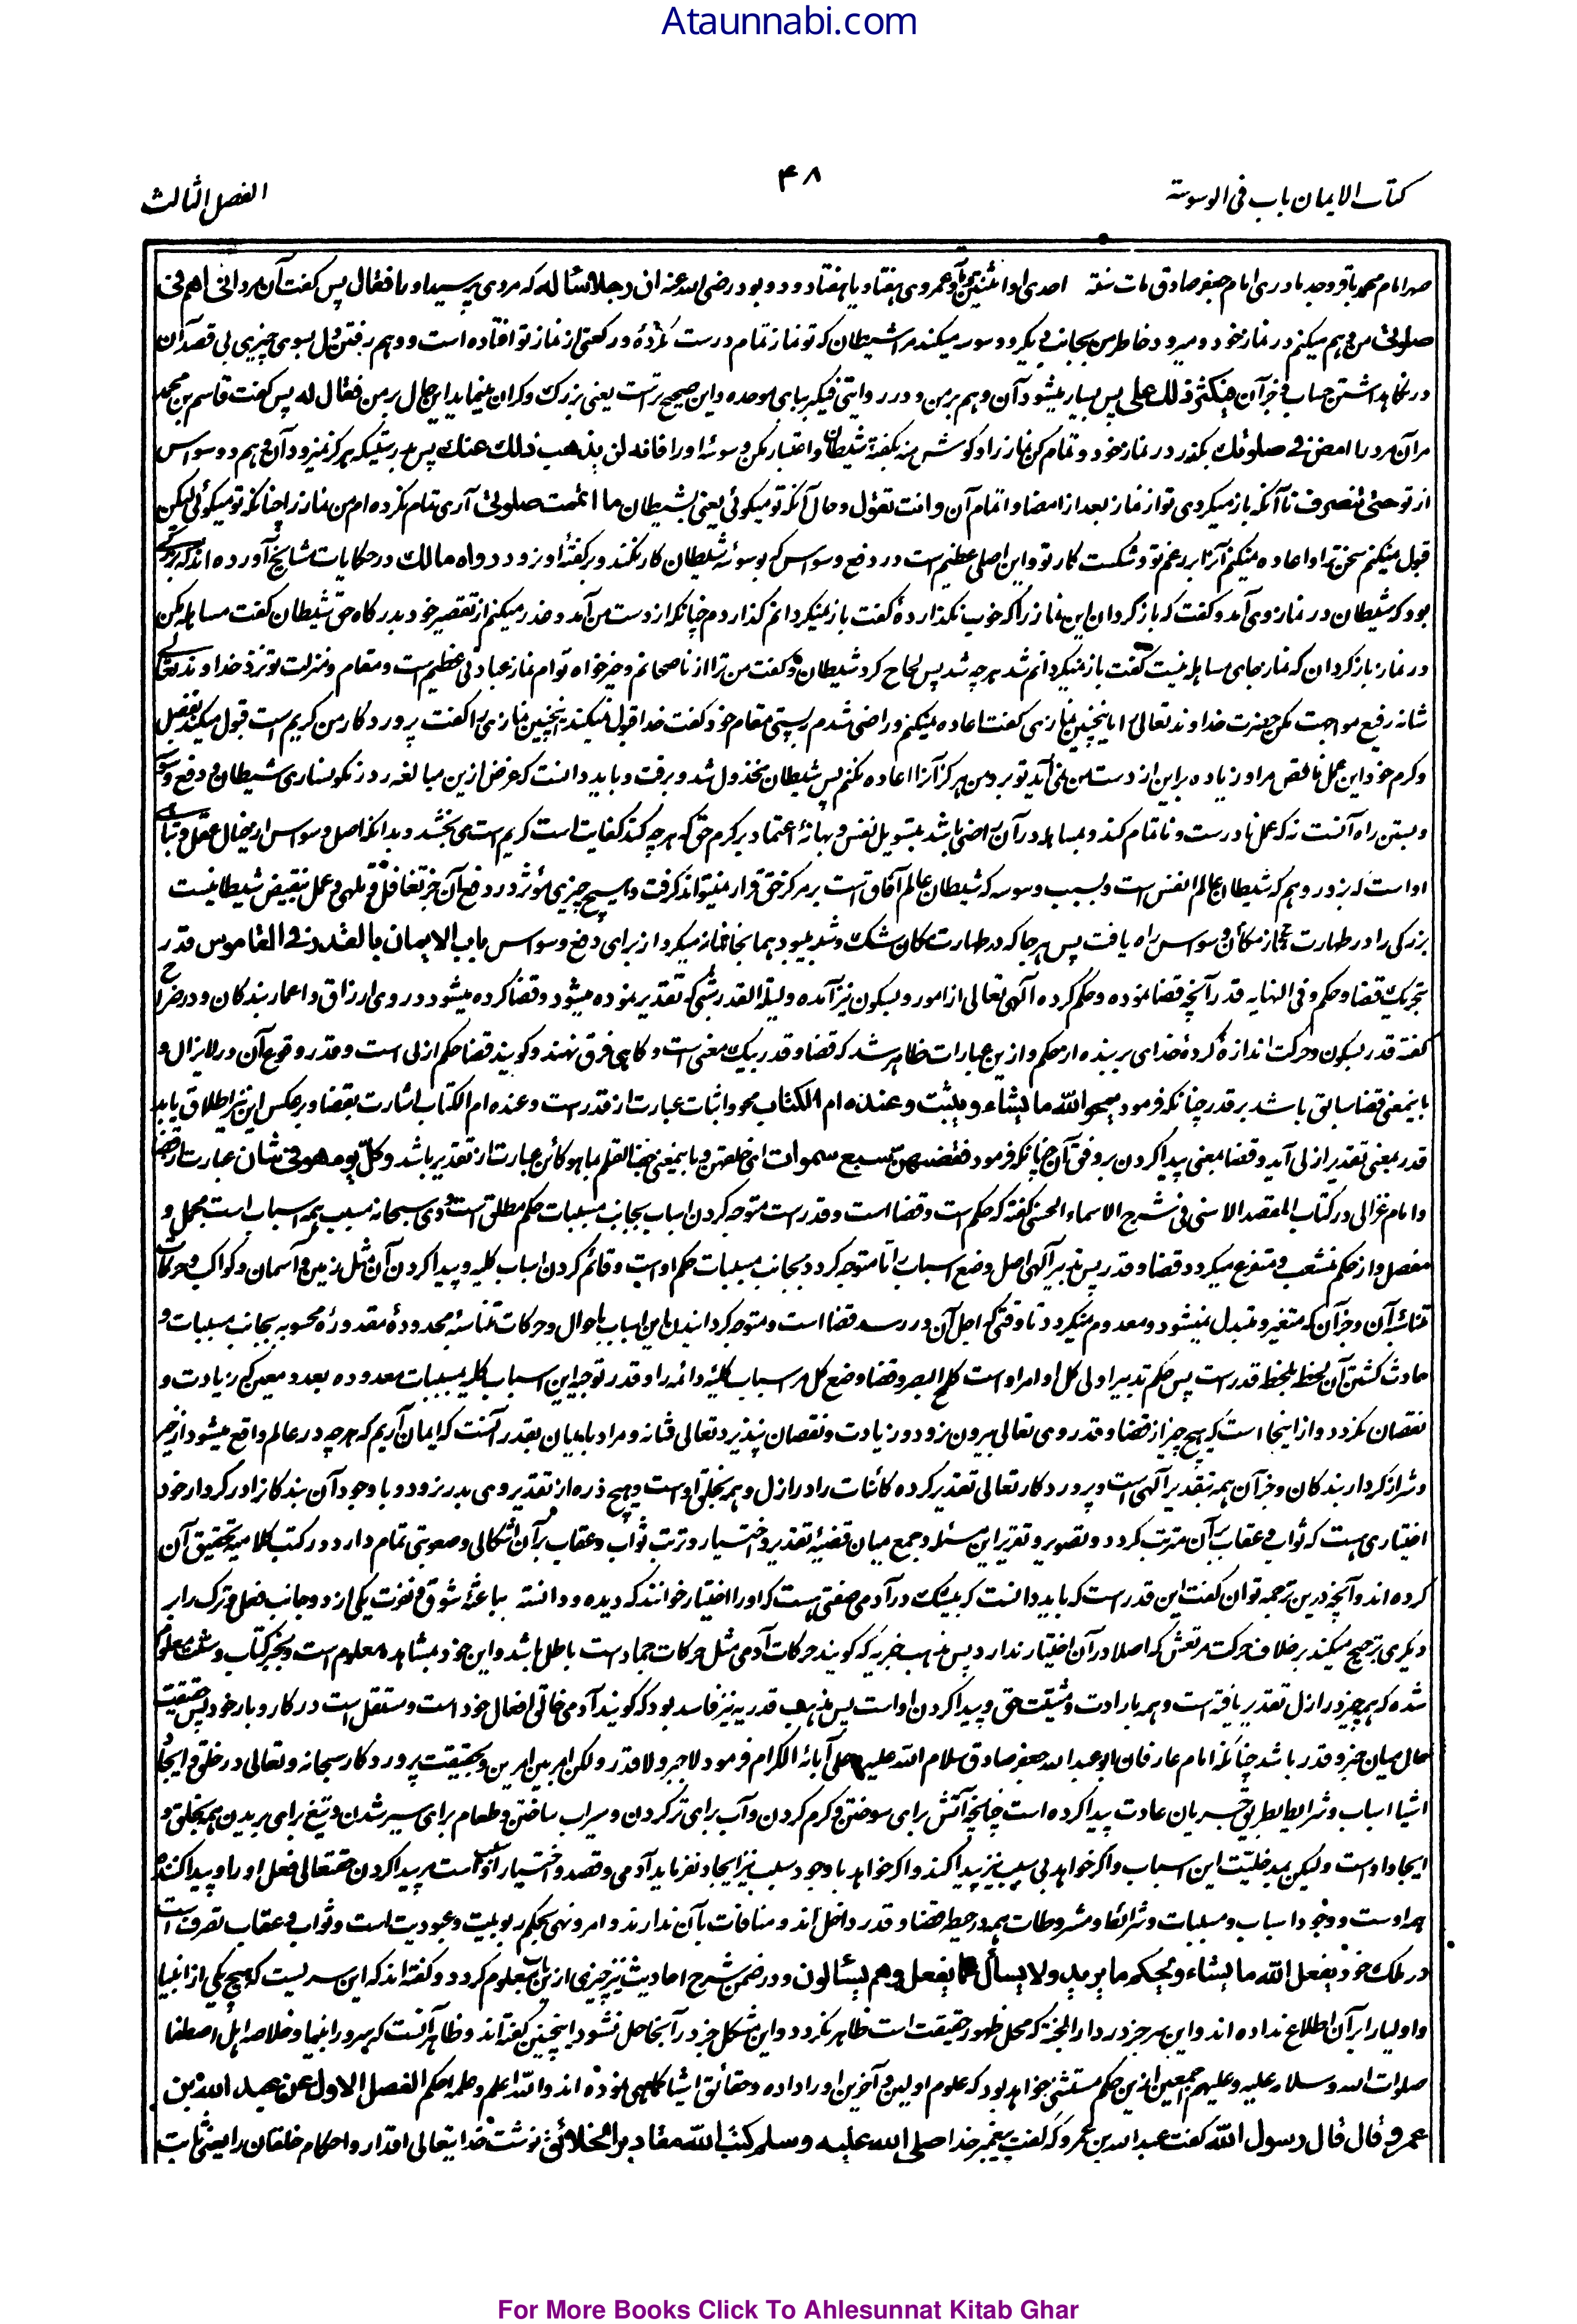 Ataunnabi.com
کتاب الایمان باب فی الوسوسة
۴۸
الفصل الثالث
صہر امام محمد باقر وجد مادری امام جعفر صادق مات سنة احدی او اثنتین و عمروی هفتاد یا هفتاد و دو بود رضی الله عنه ان رجلا سأله که مردی پرسید او را فقال پس گفت آن مرد انی اهم فی
صلوتی من وهم میکنم در نماز خود و میرود خاطر من بجانب دیگر و وسوسه میکند مرا شیطان که تو نماز تمام درست نکردهٔ و رکعتی از نماز تو افتاده است و وهم رفتن دل بسوی چیزی بی قصد آن
در نگاهداشتن حساب و جز آن فیکثر ذلك علی پس بسیار میشود آن وهم بر من و در روایتی فیکبر ببای موحده و این صحیح ترست یعنی بزرگ و گران مینماید این حال بر من فقال له پس گفت قاسم بن محمد
مر آن مرد را امض فی صلوتك بگذر در نماز خود و تمام کن نماز را و گوش منه بگفتهٔ شیطان و اعتبار مکن وسوسهٔ او را فانه لن یذهب ذلك عنك پس بدرستیکه هرگز نمیرود آن وهم و وسواس
از تو حتی تنصرف تا آنکه باز میگردی تو از نماز بعد از امضا و اتمام آن وانت تقول و حال آنکه تو میگوئی یعنی بشیطان ما اتممت صلوتی آری تمام نکرده ام من نماز را چنانکه تو میگوئی لیکن
قبول نمیکنم سخن ترا و اعاده نمیکنم آنرا بر رغم تو و شکست کار تو و این اصلی عظیم است در دفع وسواس که بوسوسهٔ شیطان کار نکنند و بر گفتهٔ او نروند رواه مالك و در حکایات مشایخ آورده اند که بزرگی
بود که شیطان در نماز وی آمد و گفت که باز گردان این نماز را که خوب نگذاردهٔ گفت باز نمیگردانم گذاردم چنانکه از دست من آمد و عذر میکنم از تقصیر خود بدرگاه حق شیطان گفت مساهله مکن
در نماز باز گردان که نماز جای مساهله نیست گفت باز نمیگردانم شد هرچه شد پس لجاح کرد شیطان و گفت من ترا از ناصحانم و خیرخواه توام نماز عبادتی عظیم ست و مقام و منزلت تو نزد خداوند تعالی
شانه رفیع مواجهت مکن حضرت خداوند تعالی را باینچنین نمازی گفت اعاده نمیکنم و راضی شدم به پستی مقام خود گفت خدا قبول نمیکند اینچنین نمازی را گفت پروردگار من کریم است قبول میکند بفضل
و کرم خود این عمل ناقص مرا و زیاده برین از دست من نمی آید تو برو من هرگز آنرا اعاده نکنم پس شیطان مخذول شد و برفت و باید دانست که غرض ازین مبالغه در نگونساری شیطان و دفع وسوسه
و بستن راه آنست نه که عمل نا درست و نا تمام کند و بمساهله در آن راضی باشد بتسویل نفس و بهانهٔ اعتماد بر کرم حق که هرچه کند کفایت است کریم ست می بخشد و بدانکه اصل وسواس از خیال عقل و تباهی
او است که بزور وهم که شیطان عالم انفس است و بسبب وسوسه که شیطان عالم آفاق است بر مرکز حق قرار نمیتواند گرفت و هیچ چیزی مؤثر در دفع آن جز تغافل و تلهی و عمل بنقیض شیطان نیست
بزرگی را در طهارت از مکان وسواس راه یافت پس هرجا که در طهارت مکان شک و شبه میبود بهمانجا نماز میکرد از برای دفع وسواس باب الایمان بالقدر فی القاموس قدر
بتحریک قضا و حکم و فی النهایه قدر آنچه قضا نموده و حکم کرده الهی تعالی از امور و بسکون نیز آمده و لیلة القدر شبی که تقدیر نموده میشود و قضا کرده میشود در وی ارزاق و اعمار بندگان و در صراح
گفته قدر بسکون و حرکت اندازه کردهٔ خدای بر بنده از حکم و ازین عبارات ظاهر شد که قضا و قدر بیک معنی است و گاهی فرق نهند و گویند قضا حکم ازلی است و قدر وقوع آن در لایزال و
باینمعنی قضا سابق باشد بر قدر چنانکه فرمود یمحو الله ما یشاء ویثبت وعنده ام الکتاب محو و اثبات عبارت از قدرست و عنده ام الکتاب اشارت بقضا و بر عکس این نیز اطلاق یابد
قدر بمعنی تقدیر ازلی آید و قضا بمعنی پیدا کردن بر وفق آن چنانکه فرمود فقضهن سبع سموات ای خلقهن و باینمعنی جف القلم بما هو کائن عبارت از تقدیر باشد و کل یوم هو فی شان عبارت از قضا
و امام غزالی در کتاب المقصد الاسنی فی شرح الاسماء الحسنی گفته که حکم است و قضا است و قدر است متوجه کردن اسباب بجانب مسببات حکم مطلق است و وی سبحانه مسبب همه اسباب است مجمل و
مفصل و از حکم منشعب و متفرع میگردد قضا و قدر پس تدبیر الهی اصل وضع اسباب را تا متوجه گردد بجانب مسببات حکم اوست و قائم کردن اسباب کلیه و پیدا کردن آن مثل زمین و آسمان و کواکب و حرکات
متناسبهٔ آن و جز آن که متغیر و متبدل نمیشود و معدوم نمیگردد تا وقتی که اجل آن در رسد قضا است و متوجه گردانیدن این اسباب باحوال و حرکات متناسبهٔ محدودهٔ مقدورهٔ محسوبه بجانب مسببات و
حادث گشتن آن لحظه بلحظه قدرست پس حکم تدبیر اولی کل و امر اوست کلمح البصر و قضا وضع کل مر اسباب کلیهٔ دائمه را و قدر توجیه این اسباب کلیه بمسببات معدوده بعدد معین که زیادت و
نقصان نگردد و از اینجا است که هیچ چیز از قضا و قدر وی تعالی بیرون نرود و زیادت و نقصان نپذیرد تعالی شانه و مراد بایمان بقدر آنست که ایمان آریم که هرچه در عالم واقع میشود از خیر
و شر از کردار بندگان و جز آن همه بتقدیر الهی است و پروردگار تعالی تقدیر کرده کائنات را در ازل و همه بخلق اوست و هیچ ذره از تقدیر وی بدر نرود و با وجود آن بندگانرا در کردار خود
اختیاری هست که ثواب و عقاب بر آن مترتب گردد و تصویر و تقریر این مسئله و جمع میان قضیهٔ تقدیر و اختیار و ترتب ثواب و عقاب بر آن اشکالی و صعوبتی تمام دارد و در کتب کلامیه تحقیق آن
کرده اند و آنچه درین ترجمه توان گفت این قدرست که باید دانست که بیشک در آدمی صفتی هست که او را اختیار خوانند که دیده و دانسته بباعثهٔ شوق و نفرت یکی از دو جانب فعل و ترک را بر
دیگری ترجیح میکند بر خلاف حرکت مرتعش که اصلا در آن اختیار ندارد پس مذهب جبریه که گویند حرکات آدمی مثل حرکات جمادست باطل باشد و این خود بمشاهده معلوم است و بخبر کتاب و سنت معلوم
شده که هر چیز در ازل تقدیر یافته است و همه بارادت و مشیت حق و پیدا کردن اوست پس مذهب قدریه نیز فاسد بود که گویند آدمی خالق افعال خود است و مستقل است در کار و بار خود پس حقیقت
حال میان جبر و قدر باشد چنانکه امام عارفان ابو عبد الله جعفر صادق سلام الله علیه و علی آبائه الکرام فرمود لا جبر ولا قدر ولکن امر بین امرین و بحقیقت پروردگار سبحانه و تعالی در خلق و ایجاد
اشیا اسباب و شرائط بطریق جریان عادت پیدا کرده است چنانچه آتش برای سوختن و گرم کردن و آب برای تر کردن و سیراب ساختن و طعام برای سیر شدن و تیغ برای بریدن همه بخلق و
ایجاد اوست ولیکن بمدخلیت این اسباب و اگر خواهد بی سبب نیز پیدا کند و اگر خواهد با وجود سبب نیز ایجاد نفرماید آدمی و قصد و اختیار او سبب است مر پیدا کردن حقتعالی فعل او را و پیدا کننده
همه اوست و وجود اسباب و مسببات و شرائط و مشروطات همه در حیطه قضا و قدر داخل اند و منافات بآن ندارند و امر و نهی بحکم ربوبیت و عبودیت است و ثواب و عقاب تصرف است
در ملک خود یفعل الله ما یشاء و یحکم ما یرید ولا یسأل عما یفعل وهم یسألون و در ضمن شرح احادیث نیز چیزی ازین باب معلوم گردد و گفته اند که این سریست که هیچ یکی از انبیا
و اولیا را بر آن اطلاع نداده اند و این سر جز در دار الجنة که محل ظهور حقیقت است ظاهر نگردد و این مشکل جز در آنجا حل نشود اینچنین گفته اند و ظاهر آنست که سرور انبیا و خلاصه اهل اصطفا
صلوات الله وسلامه علیه وعلیهم اجمعین ازین حکم مستثنی خواهد بود که علوم اولین و آخرین او را داده و حقائق اشیا کماهی نموده اند والله اعلم وعلمه احکم الفصل الاول عن عبد الله بن
عمرو قال قال رسول الله گفت عبد الله بن عمرو که گفت پیغمبر خدا صلی الله علیه وسلم کتب الله مقادیر الخلائق نوشت خدایتعالی اقدار و احکام خلقان را یعنی ثابت
For More Books Click To Ahlesunnat Kitab Ghar